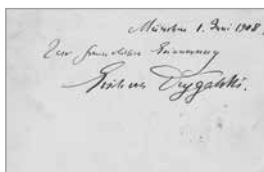 München 1. Juni 1908.
Zur freundlichen Erinnerung
Erich von Drygalski.